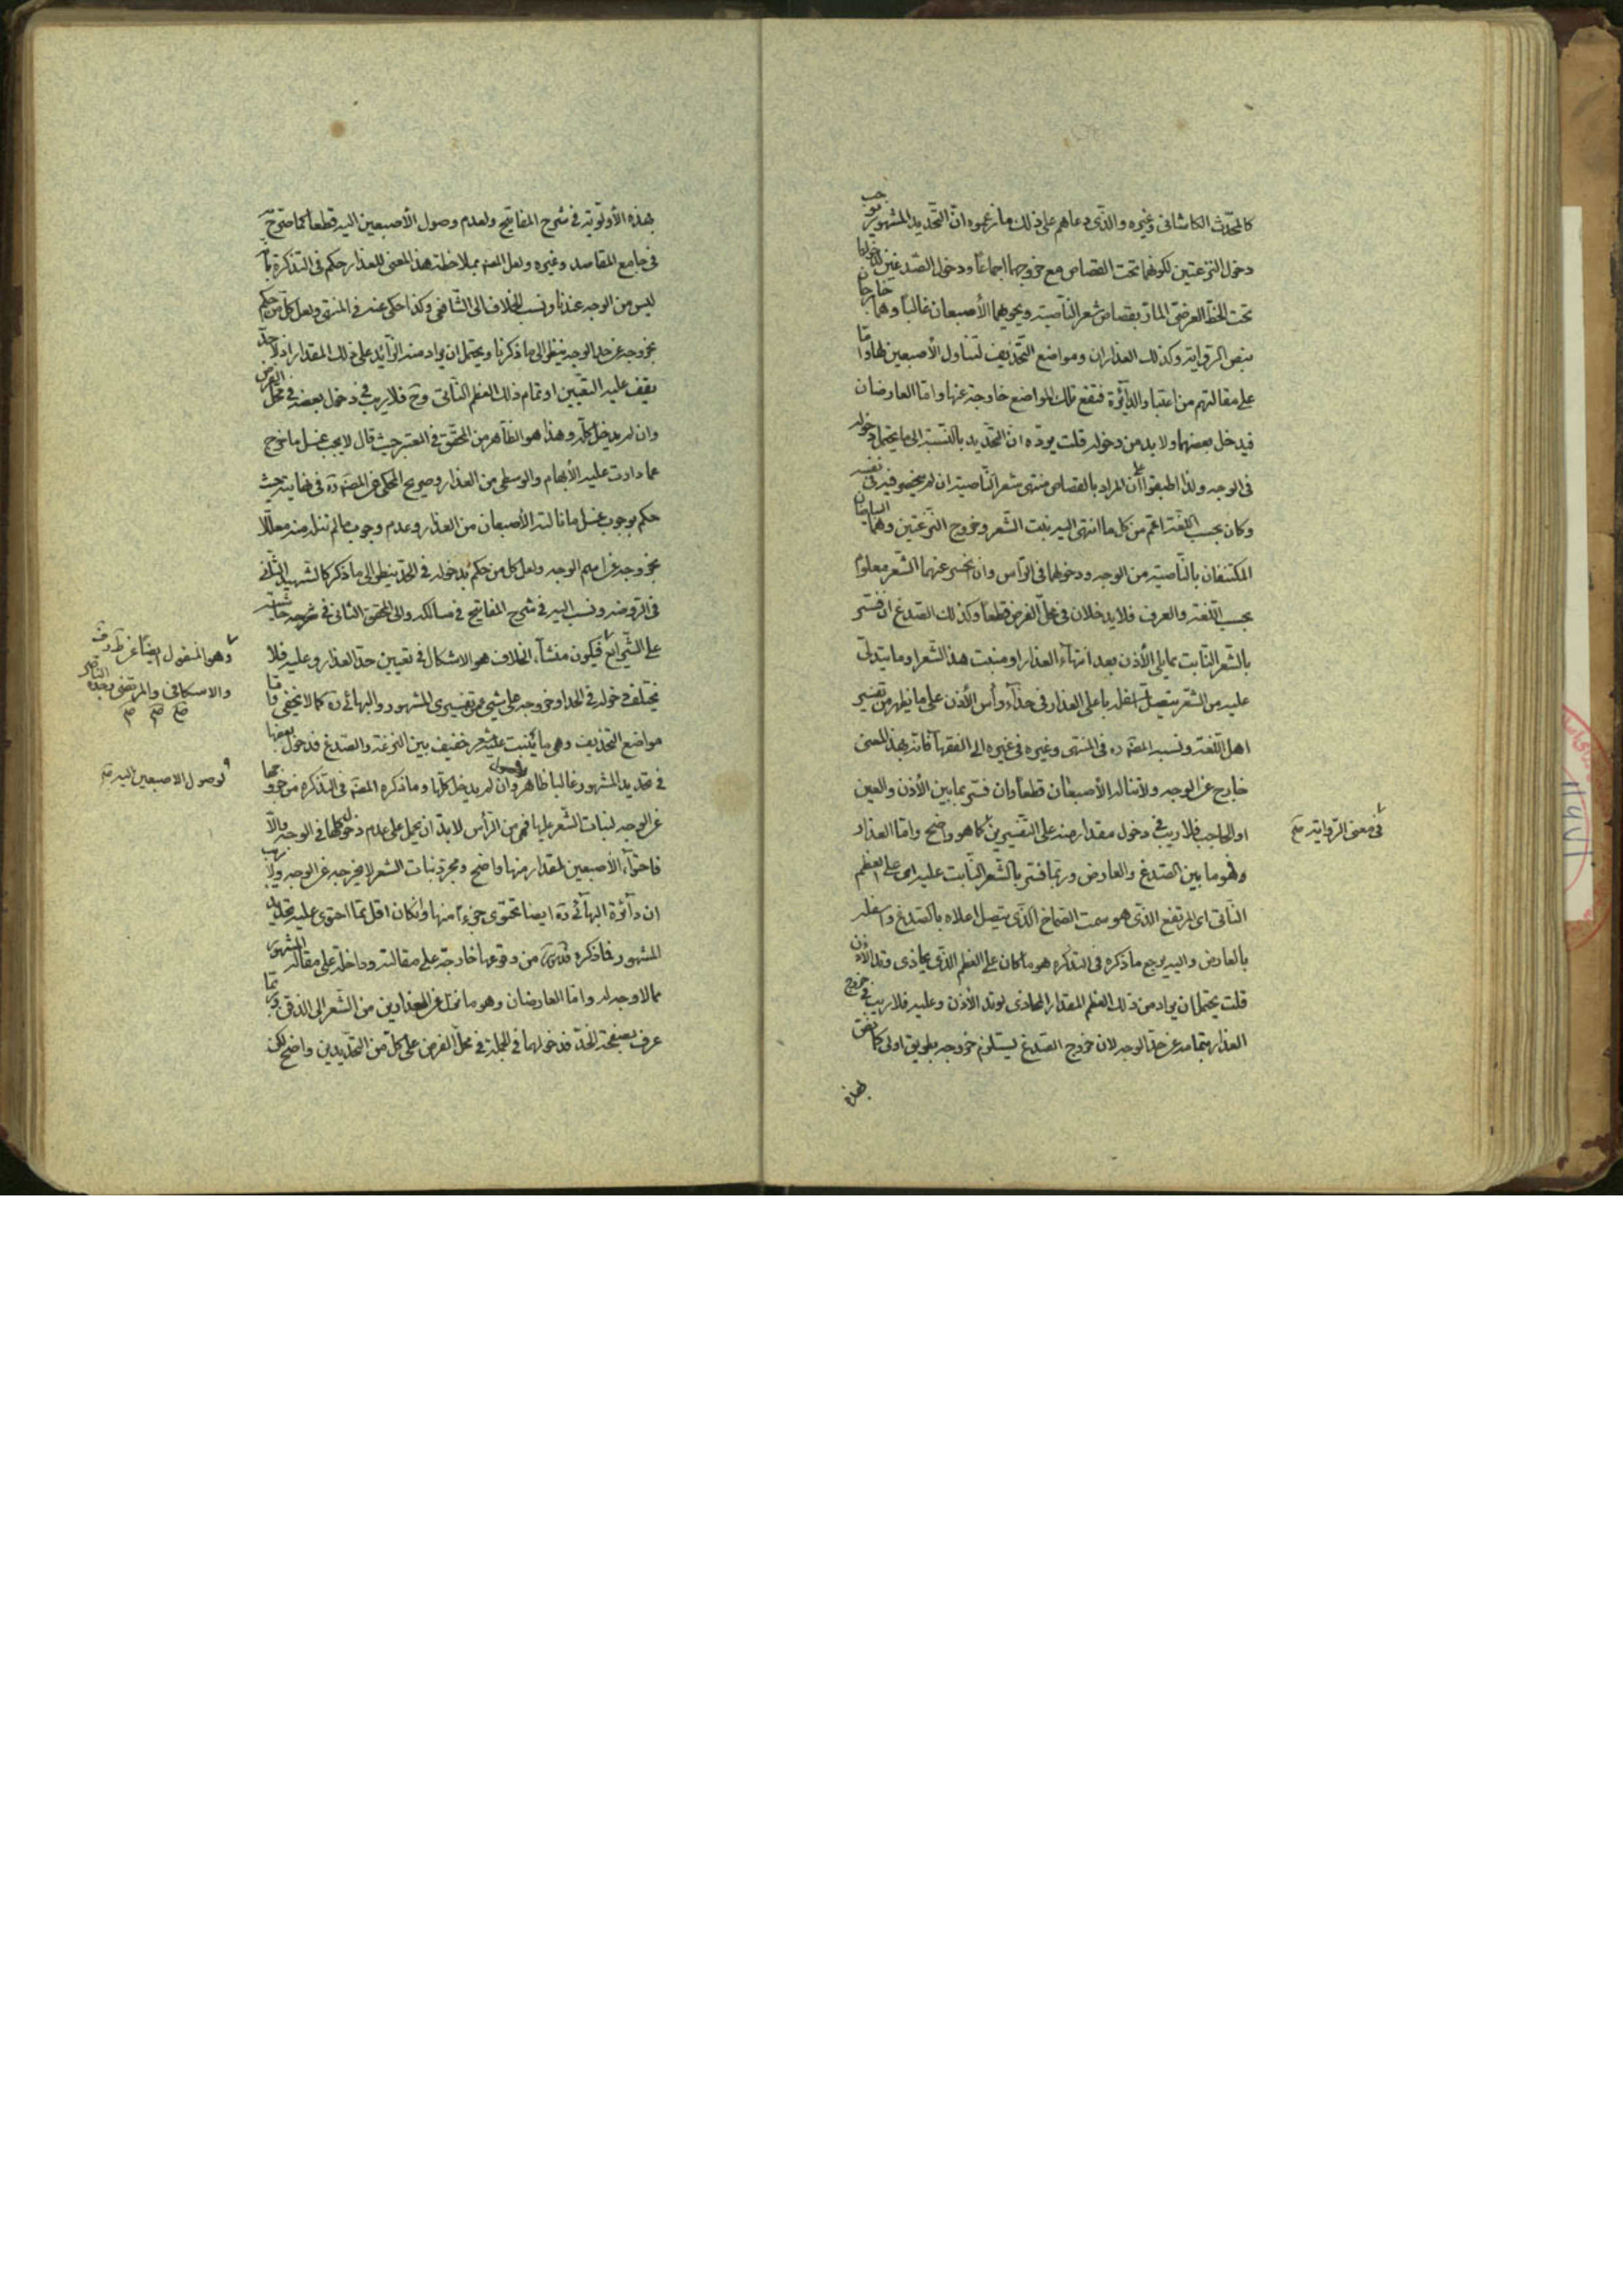 كالمحدّث الكاشانى وغيره والّذى دعاهم على ذلك ما زعموه انّ التّحديد المشهور يوجب
دخول النزعتين لكونهما تحت القصاص مع خروجهما اجماعًا ودخول الصّدغين لدخولهما
تحت الخطّ العرضىّ المارّ بقصاص شعر النّاصية ويحويهما الأصبعان غالبًا وهما خارجان
بنص الرّواية وكذلك العذاران ومواضع التّحذيف لتناول الأصبعين لها وامّا
على مقالتهم من اعتبار الدّائرة فتقع تلك المواضع خارجة عنها وامّا العارضان
فيدخل بعضهما ولا بد من دخوله قلت يردّه انّ التّحديد بالنّسبة الى ما يحتمل دخوله
فى الوجه ولذا اطبقوا على أن المراد بالقصاص منتهى شعر النّاصية ان لم يخصّوه فيه فى نفسه
وكان بحسب اللّغة اعمّ من كل ما انتهى اليه نبت الشّعر وخروج النّزعتين وهما البياضان
المكتنفان بالنّاصية من الوجه ودخولهما فى الرّأس وان انحسر عنهما الشّعر معلوم
بحسب اللّغة والعرف فلا يدخلان فى محلّ الفرض قطعًا وكذلك الصّدغ ان فسّر
بالشّعر النّابت مما يلى الأذن بعد انتهاء العذار او منبت هذا الشّعر او ما يتدلّى
عليه من الشّعر يتصل اسفله باعلى العذار فى حذاء رأس الأذن على ما يظهر من تفسير
اهل اللّغة ونسبه المصّ ره فى المنتهى وغيره فى غيره الى الفقهاء فانّه بهذا المعنى
خارج عن الوجه ولا تناله الأصبعان قطعًا وان فسّر بما بين الأذن والعين
او الحاجب فلا ريب فى دخول مقدار منه على التّفسيرين كما هو واضح وامّا العذار
فى معنى الرّواية صح
فهو ما بين الصّدغ والعارض وربّما فسّر بالشّعر النّابت عليه اى على العظم
النّاتى اى المرتفع الّذى هو سمت الصّماخ الّذى يتصل اعلاه بالصّدغ واسفله
بالعارض واليه يرجع ما ذكره فى التذكره هو ما كان على العظم الّذى يحاذى وتد الأذن
قلت يحتمل ان يراد من ذلك العظم المقدار المحاذى لوتد الأذن وعليه فلا ريب فى خروج
العذار بتمامه عن حدّ الوجه لان خروج الصّدغ يستلزم خروجه بطريق اولى كما
بهذه
بهذه الأولويّة فى شرح المفاتيح ولعدم وصول الأصبعين اليه قطعًا كما صرّح به
فى جامع المقاصد وغيره ولعل المصّ بملاحظة هذا المعنى للعذار حكم فى التذكرة بأنه
ليس من الوجه عندنا ونسب الخلاف الى الشّافعى وكذا حكى عنه فى المنتهى ولعل كل من حكم
بخروجه عن حد الوجه ينظر الى ما ذكرنا ويحتمل ان يراد منه الزّائد على ذلك المقدار اذ لا حدّ
يقف عليه التعيين او تمام ذلك العظم النّاتى وح فلا ريب فى دخول بعضه فى محل الفرض
وان لم يدخل كلّه وهذا هو الظّاهر من المحقّق فى المعتبر حيث قال لا يجب غسل ما خرج
عما دارت عليه الأبهام والوسطى من العذار وصريح المحكى عن المصّ ره فى نهايته حيث
حكم بوجوب غسل ما نالته الأصبعان من العذار وعدم وجوب ما لم تنله منه معلّلا
بخروجه عن اسم الوجه ولعل كل من حكم بدخوله فى الحدّ ينظر الى ما ذكر كالشهيد الثّانى
فى الرّوضه ونسب اليه فى شرح المفاتيح فى مسالكه والى المحقّق الثانى فى حاشيته
على الشّرايع فيكون منشأ الخلاف هو الاشكال فى تعيين حدّ العذار وعليه فلا
وهو المنقول ايضًا عن ط وف
والاسكافى والمرتضى وجده النّاصر
صح صح م
يختلف دخوله فى الحد او خروجه على شيئ من تفسيرى المشهور والبهائى ره كما لا يخفى وامّا
مواضع التّحذيف وهى ما ينبت عليه شعر خفيف بين النزعة والصّدغ فدخول بعضها
فى تحديد المشهور غالبا ظاهر وان لم يدخل كلّها وما ذكره المصّ فى التذكره من خروجها
لوصول الاصبعين اليه صح
عن الوجه لنبات الشّعر عليها فهى من الرّأس لا بدّ ان يحمل على عدم دخول كلها فى الوجه والّا
فاحتواء الأصبعين لمقدار منها واضح ومجرّد نبات الشعر لا يخرجه عن الوجه ولا ريب
ان دائرة البهائى ره ايضا تحتوى جزءًا منها وان كان اقل مما احتوى عليه تحديد
المشهور فما ذكره قدّس سرّه من وقوعها خارجة على مقالته وداخلة على مقالة المشهور
مما لا وجه له وامّا العارضان وهو ما نزل عن العذارين من الشّعر الى الذقن وربّما
عرف بصفحة الخدّ فدخولهما فى الجملة فى محلّ الفرض على كلّ من التحديدين واضح لكن